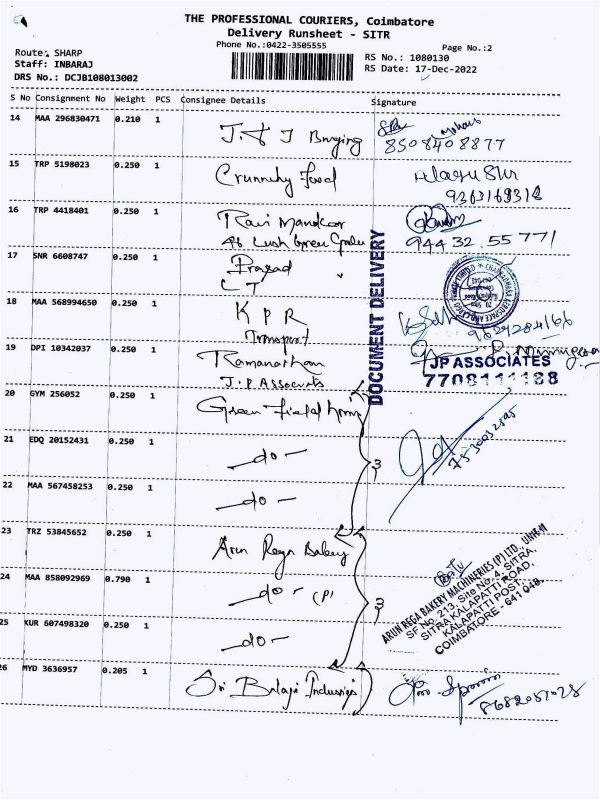 THE PROFESSIONAL COURIERS, Coimbatore
Delivery Runsheet - SITR
Phone No.:0422-3505555
Page No.:2
Route: SHARP
Staff: INBARAJ
DRS No.: DCJB108013002
RS No.: 1080130
RS Date: 17-Dec-2022
S No Consignment No Weight PCS Consignee Details Signature
14 MAA 296830471 0.210 1
8508408877
15 TRP 5198023 0.250 1 Crunchy Food
9363169318
16 TRP 4418401 0.250 1 Ravi
944 32 55 771
17 SNR 6608747 0.250 1 Prasad
LT
18 MAA 568994650 0.250 1 K P R
Transport
9629284166
19 DPI 10342037 0.250 1 Ramanathan
J.P Associates
DOCUMENT DELIVERY
JP ASSOCIATES
7708111188
20 GYM 256052 0.250 1 Green Field
21 EDQ 20152431 0.250 1 - do -
3
22 MAA 567458253 0.250 1 - do -
23 TRZ 53845652 0.250 1 Arun Rega Bakery
24 MAA 858092969 0.790 1 - do - (P)
3
25 KUR 607498320 0.250 1 - do -
ARUN REGA BAKERY MACHINERIES (P) LTD., UNIT-II
SF No. 213, Site No. 4, SITRA,
SITRA KALAPATTI ROAD,
KALAPATTI POST,
COIMBATORE - 641 048.
26 MYD 3636957 0.205 1 Sri Balaji Industries